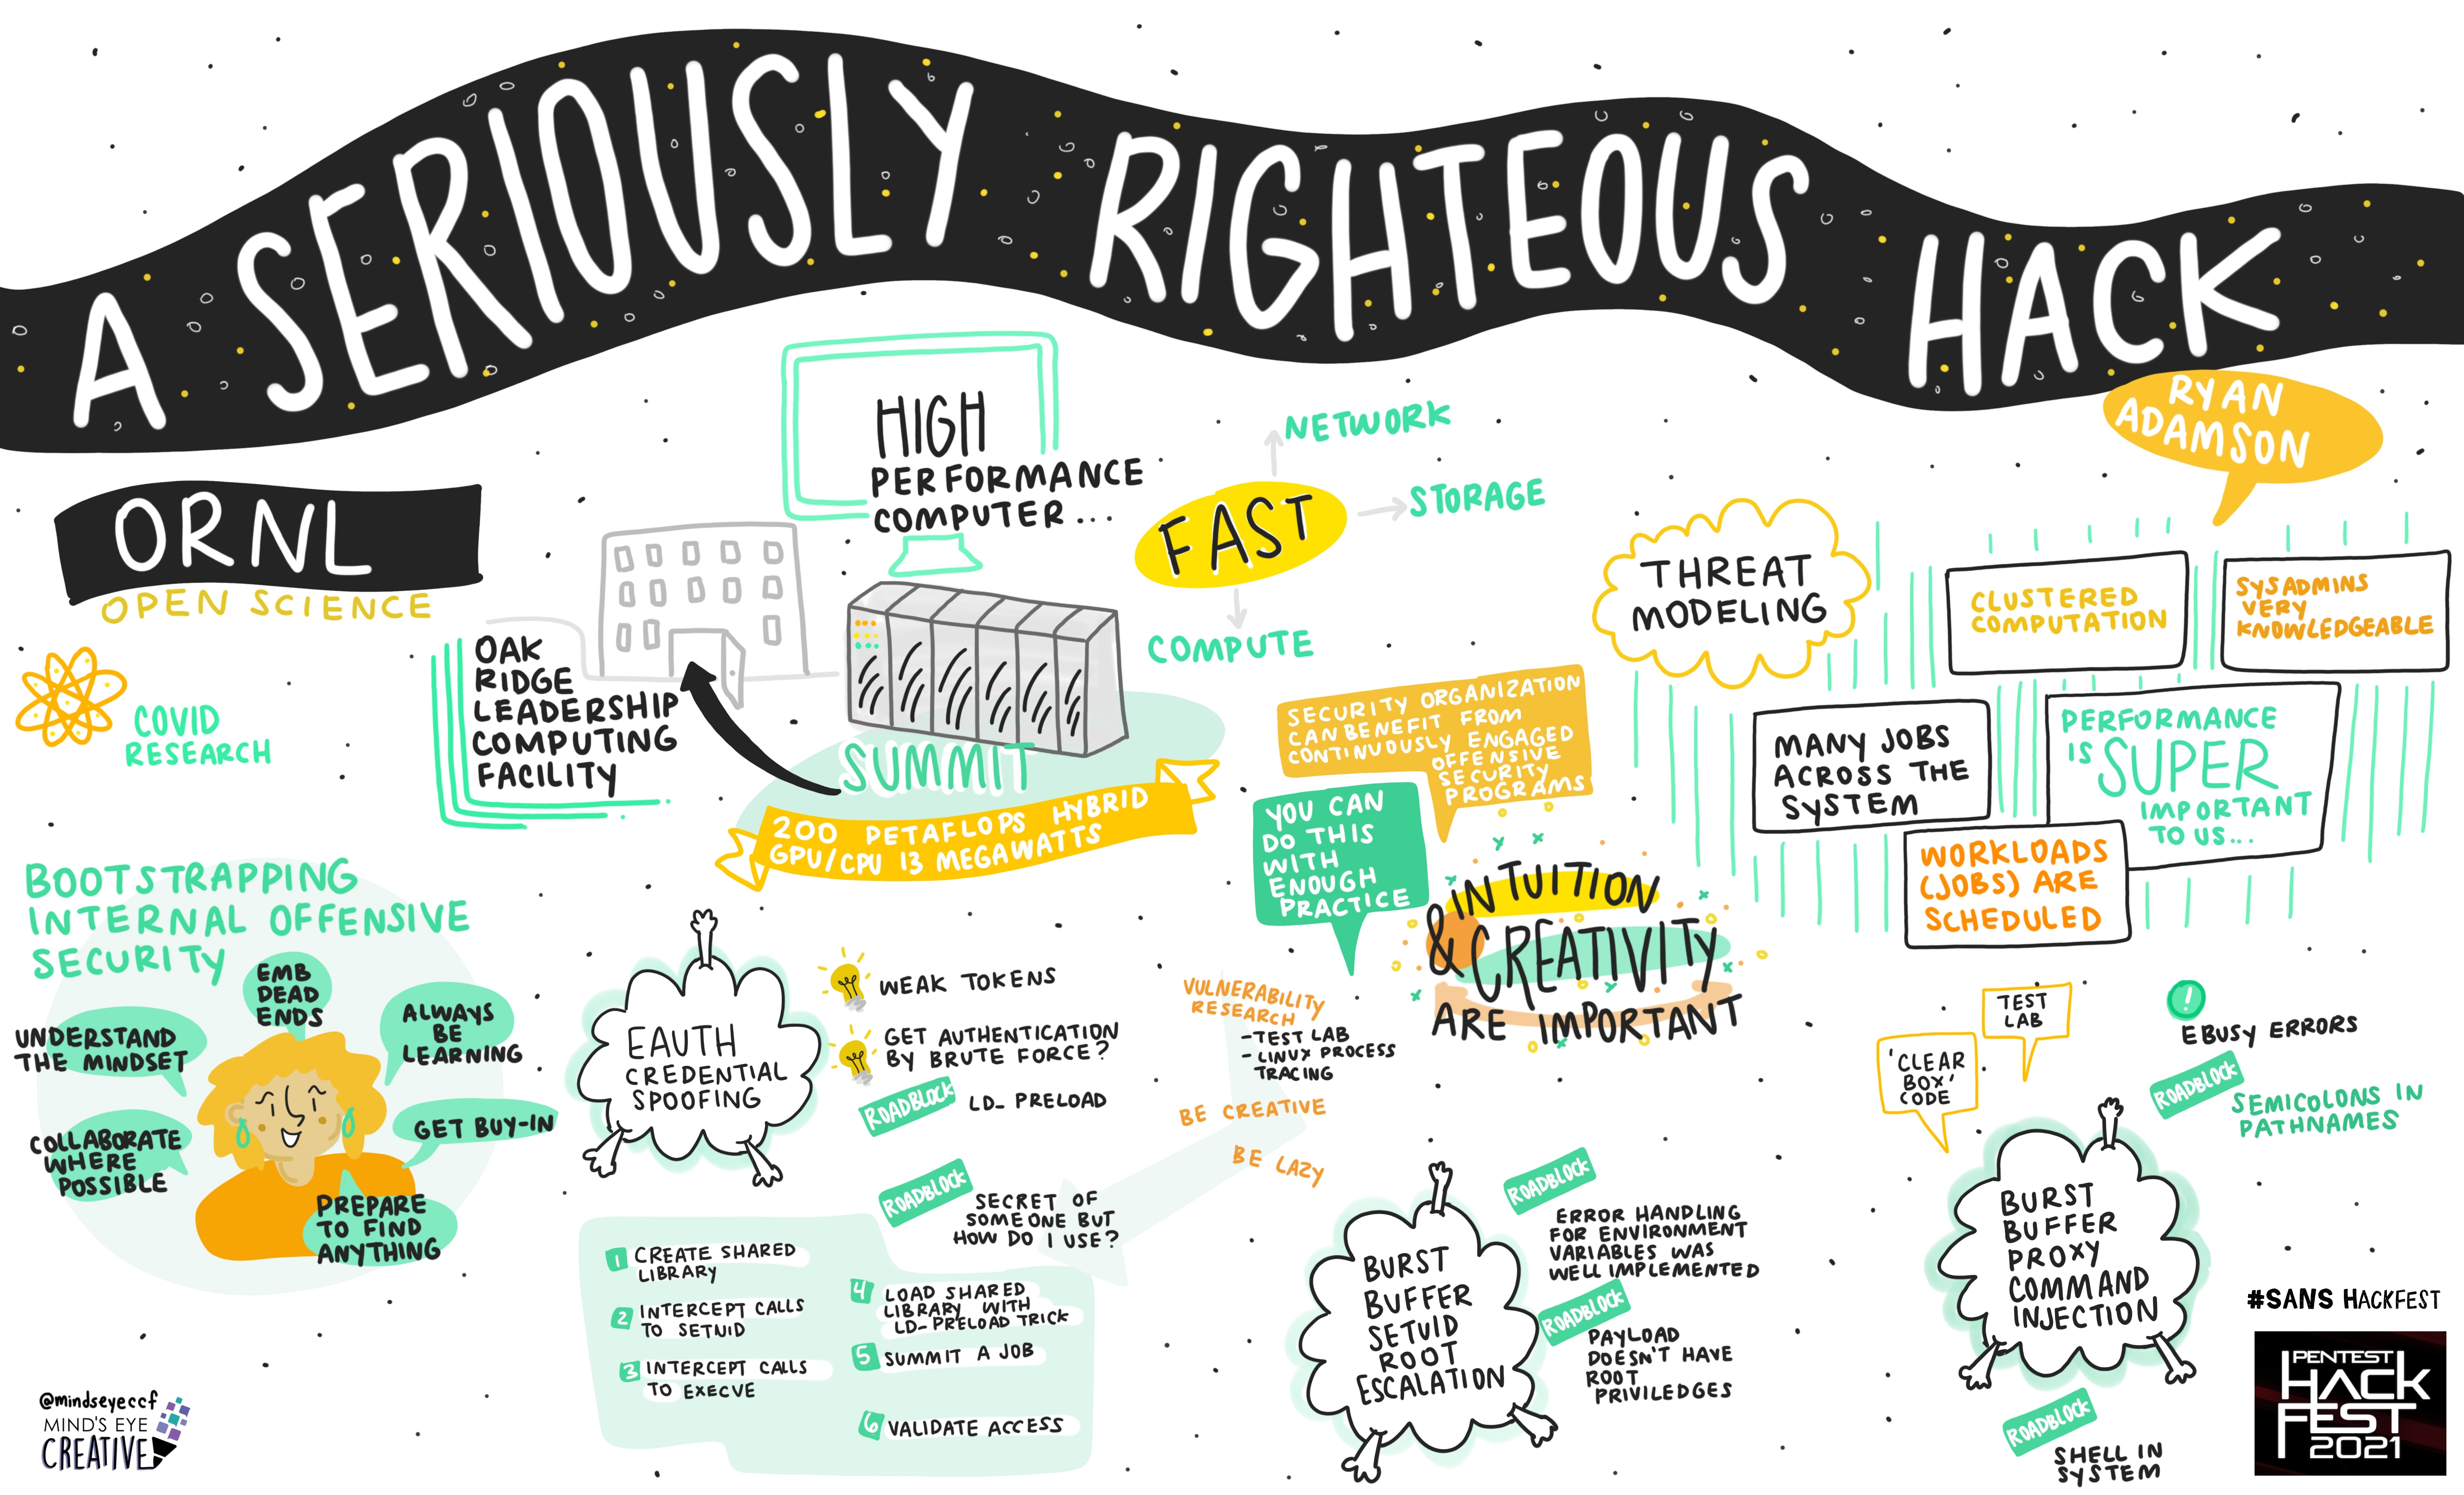 A SERIOUSLY RIGHTEOUS HACK
RYAN
ADAMSON
ORNL
OPEN SCIENCE
COVID
RESEARCH
OAK
RIDGE
LEADERSHIP
COMPUTING
FACILITY
HIGH
PERFORMANCE
COMPUTER...
FAST
NETWORK
STORAGE
COMPUTE
SUMMIT
200 PETAFLOPS HYBRID
GPU/CPU 13 MEGAWATTS
THREAT
MODELING
CLUSTERED
COMPUTATION
SYSADMINS
VERY
KNOWLEDGEABLE
MANY JOBS
ACROSS THE
SYSTEM
PERFORMANCE
IS SUPER
IMPORTANT
TO US...
WORKLOADS
(JOBS) ARE
SCHEDULED
SECURITY ORGANIZATION
CAN BENEFIT FROM
CONTINUOUSLY ENGAGED
OFFENSIVE
SECURITY
PROGRAMS
YOU CAN
DO THIS
WITH
ENOUGH
PRACTICE
INTUITION
& CREATIVITY
ARE IMPORTANT
BOOTSTRAPPING
INTERNAL OFFENSIVE
SECURITY
EMB
DEAD
ENDS
UNDERSTAND
THE MINDSET
ALWAYS
BE
LEARNING
COLLABORATE
WHERE
POSSIBLE
GET BUY-IN
PREPARE
TO FIND
ANYTHING
EAUTH
CREDENTIAL
SPOOFING
WEAK TOKENS
GET AUTHENTICATION
BY BRUTE FORCE?
ROADBLOCK
LD_ PRELOAD
ROADBLOCK
SECRET OF
SOMEONE BUT
HOW DO I USE?
1 CREATE SHARED
LIBRARY
2 INTERCEPT CALLS
TO SETUID
3 INTERCEPT CALLS
TO EXECVE
4 LOAD SHARED
LIBRARY WITH
LD-PRELOAD TRICK
5 SUMMIT A JOB
6 VALIDATE ACCESS
VULNERABILITY
RESEARCH
- TEST LAB
- LINUX PROCESS
TRACING
BE CREATIVE
BE LAZY
BURST
BUFFER
SETUID
ROOT
ESCALATION
ROADBLOCK
ERROR HANDLING
FOR ENVIRONMENT
VARIABLES WAS
WELL IMPLEMENTED
ROADBLOCK
PAYLOAD
DOESN'T HAVE
ROOT
PRIVILEDGES
'CLEAR
BOX'
CODE
TEST
LAB
EBUSY ERRORS
ROADBLOCK
SEMICOLONS IN
PATHNAMES
BURST
BUFFER
PROXY
COMMAND
INJECTION
ROADBLOCK
SHELL IN
SYSTEM
#SANS HACKFEST
PENTEST
HACK
FEST
2021
@mindseyeccf
MIND'S EYE
CREATIVE